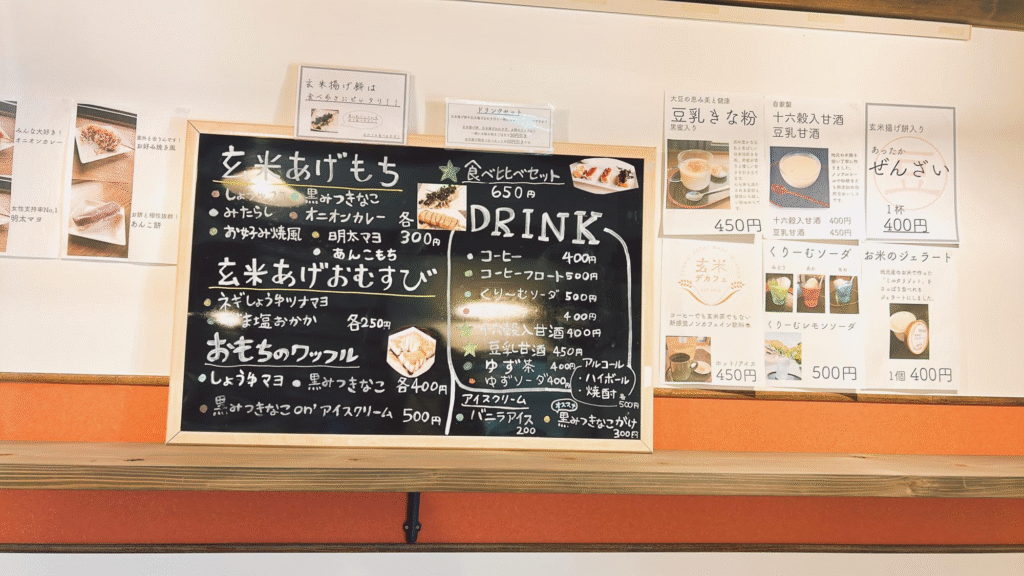 みんな大好き!
オニオンカレー
女性支持率No.1
明太マヨ
意外と合うんです!
お好み焼き風
お餅と相性抜群!
あんこ餅
玄米揚げ餅は
食べ歩きにピッタリ!!
ドリンクセット
玄米あげもち
しょうゆ
黒みつきなこ
みたらし
オニオンカレー 各
お好み焼風
明太マヨ 300円
あんこもち
玄米あげおむすび
ネギしょうゆツナマヨ
ごま塩おかか 各250円
おもちのワッフル
しょうゆマヨ
黒みつきなこ 各400円
黒みつきなこon'アイスクリーム 500円
食べ比べセット
650円
DRINK
コーヒー 400円
コーヒーフロート 500円
くり〜むソーダ 500円
400円
十六穀入甘酒 400円
豆乳甘酒 450円
ゆず茶 400円
ゆずソーダ 400円
アルコール
・ハイボール
・焼酎
各500円
アイスクリーム
バニラアイス
200
オススメ
黒みつきなこがけ
300円
大豆の恵み美と健康
豆乳きな粉
黒蜜入り
450円
自家製
十六穀入甘酒
豆乳甘酒
十六穀入甘酒 400円
豆乳甘酒 450円
玄米揚げ餅入り
あったか
ぜんざい
1杯
400円
玄米
デカフェ
コーヒーでも玄米茶でもない
新感覚ノンカフェイン飲料
ホット/アイス
450円
くりーむソーダ
くりーむレモンソーダ
500円
お米のジェラート
地元産のお米で作った
ジェラートにしました。
1個 400円